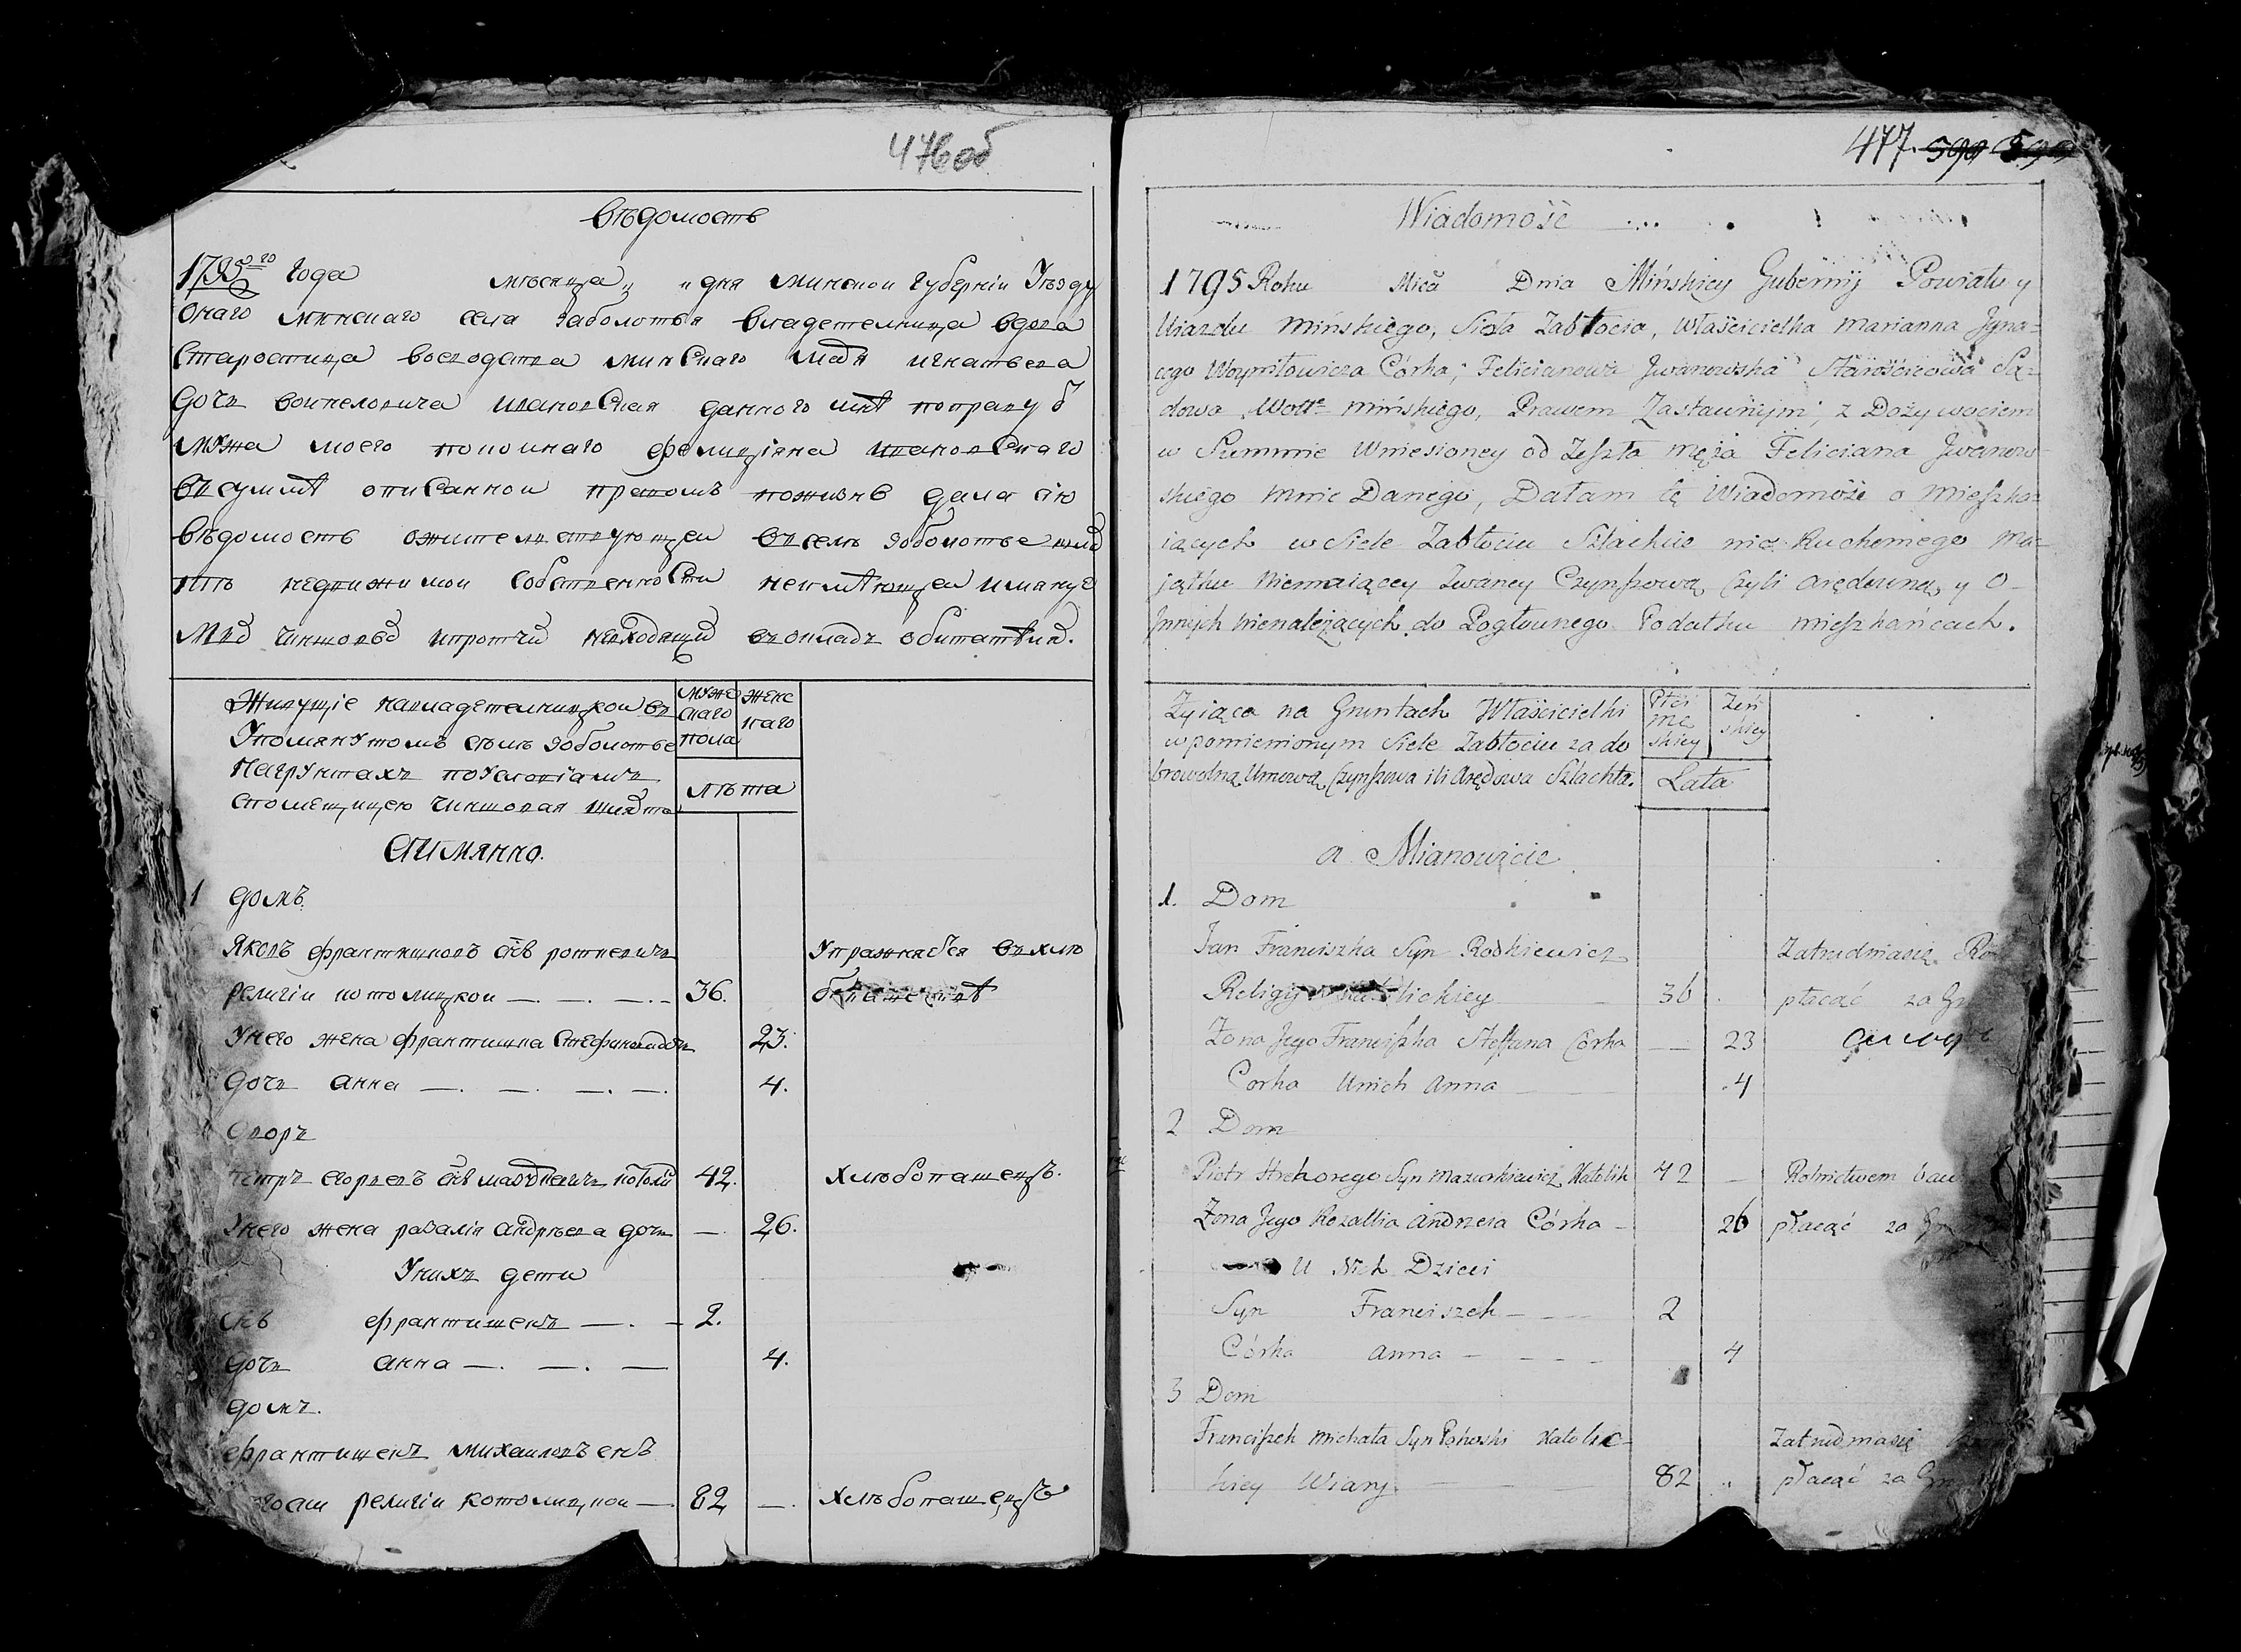 476об
Вѣдомость
1795го года мѣсяца „ „ дня минской губерніи Уѣзду
онаго минскаго села заболотья владетелница вдова
Старостина воеводства минскаго игнатьева
дочь Иановская данного мнѣ поправу
мужа моего покоинаго фелиціяна ивановскаго
въсуммѣ описанной правомъ пожизнь дала сію
вѣдомость ожителствующей въселѣ заболотье
недвижимой собственности неимѣющей имянуе
мыхъ чиншовыхъ ипротчихъ невходящихъ въокладъ обитателяхъ.
Живущіе навладетелницкои въ
Упомянутомъ селѣ заболотье
Нагрунтахъ поусловіамъ
спомещицею чиншовая шляхта
муже
скаго
пола
женс
каго
лѣта
Аимянно.
1 домъ
Яковъ франтишковъ снъ роткевичь
религіи котолицкои — . — . — . - 36.
Упражняется въ хлѣ
бопашествѣ
Унего жена франтишка Стефановна 23.
Дочь анна — . — . — . — . 4.
Дворъ
петръ егоровъ снъ 42. хлѣбопашецъ.
Унего жена разалія андрѣева дочь — 26.
Унихъ дети
снъ франтишекъ — . — 2.
дочь анна — . — . — 4.
домъ.
франтишекъ михаиловъ снъ
религіи котолицкои — 82 — . хлѣбопашецъ
477. 590
Wiadomość
1795 Roku Mića Dnia Mińskiey Gubernij Powiatu y
Uiazdu Mińskiego, Sioła Zabłocia, Właścicielka Marianna Jgna=
cego Woyniłowicza Córka, Felicianowa Jwanowska Starościcowa Są=
dowa Wottª Mińskiego, Prawem Zastawnym, z Dożywociem
w Summie Wniesioney od Zeszła męża Feliciana Jwanow=
skiego mnie Danego, Dałam tę Wiadomość o mieszka=
iących w Siele Zabłociu Szlachcie nie Ruchomego Ma=
jątku Niemaiącey Zwaney Czynszową Czyli arędowną y o
Jnnych Nienależących do Pogłownego Podatku mieszkańcach.
Żyiąca na Gruntach Właścicielki
w pomienionym Siele Zabłociu za do
browolną Umową Czynszowa ili Arędowa Szlachta.
Płci
mę
skiey
Żeń
skiey
Lata
a Mianowicie
1. Dom
Jan Franciszka Syn Rodkiewicz
Zatrudniasię
Religij 36
płacąć za
Żona Jego Franciszka Steffana Córka — 23
Corka Unich Anna — 4
2 Dom
Piotr Hrehorego Syn Mazurkiewicz Katolik 42 — Rolnictwem
Żona Jego Rozallia Andrzeia Córka — 26 płacąć za
U Nich Dzieci
Syn Franciszek — 2
Córka Anna — 4
3 Dom
Franciszek Michała Syn Katolic=
Zatrudniasię
kiey Wiary — 82 płacąć za